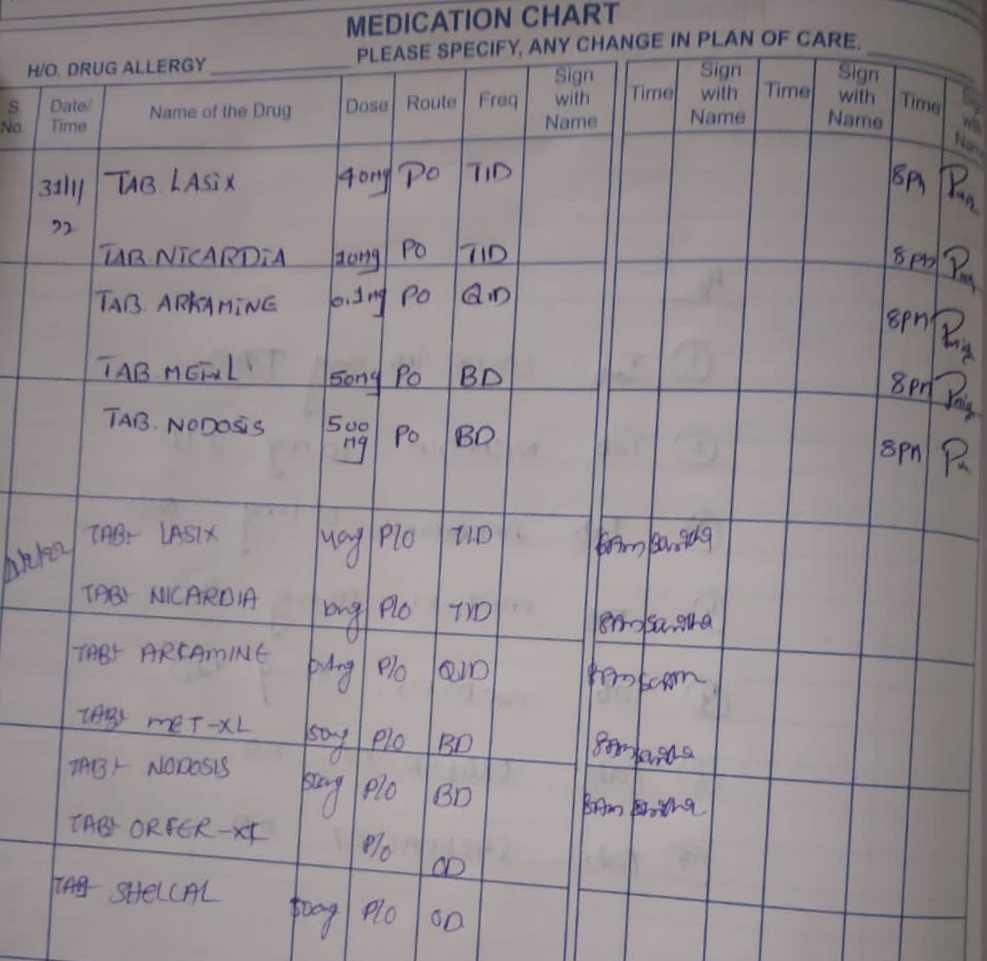 MEDICATION CHART
PLEASE SPECIFY, ANY CHANGE IN PLAN OF CARE.
H/O. DRUG ALLERGY
S. No. Date/ Time Name of the Drug Dose Route Freq Sign with Name Time Sign with Name Time Sign with Name Time Sign with Name
TAB LASIX 40mg PO TID 8pm
22
TAB NICARDIA 10mg PO TID 8pm
TAB. ARKAMINE 0.1mg PO QID 8pm
TAB METXL 50mg PO BD 8pm
TAB. NODOSIS 500 mg PO BD 8pm
TAB LASIX P/o TID 8Am Saritha
TAB NICARDIA P/o TID 8Am Saritha
TAB ARKAMINE 0.1mg P/o QID 8Am
TAB MET-XL 50mg P/o BD 8Am Saritha
TAB NODOSIS P/o BD 8Am Saritha
TAB ORFER-XT P/o OD
TAB SHELCAL 500mg P/o OD